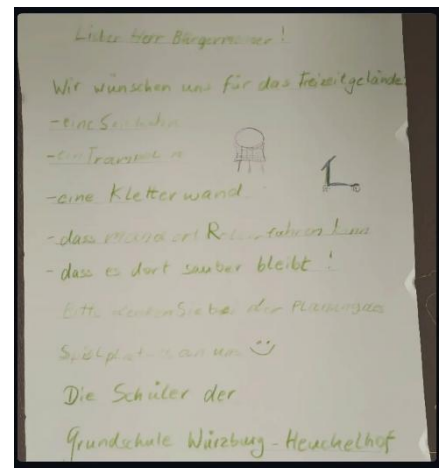 Lieber Herr Bürgermeister!
Wir wünschen uns für das Freizeitgelände:
- eine Seilbahn
- ein Trampolin
- eine Kletterwand
- dass man dort Roller fahren kann
- dass es dort sauber bleibt!
Bitte denken Sie bei der Planung des
Spielplatzes an uns
Die Schüler der
Grundschule Würzburg-Heuchelhof